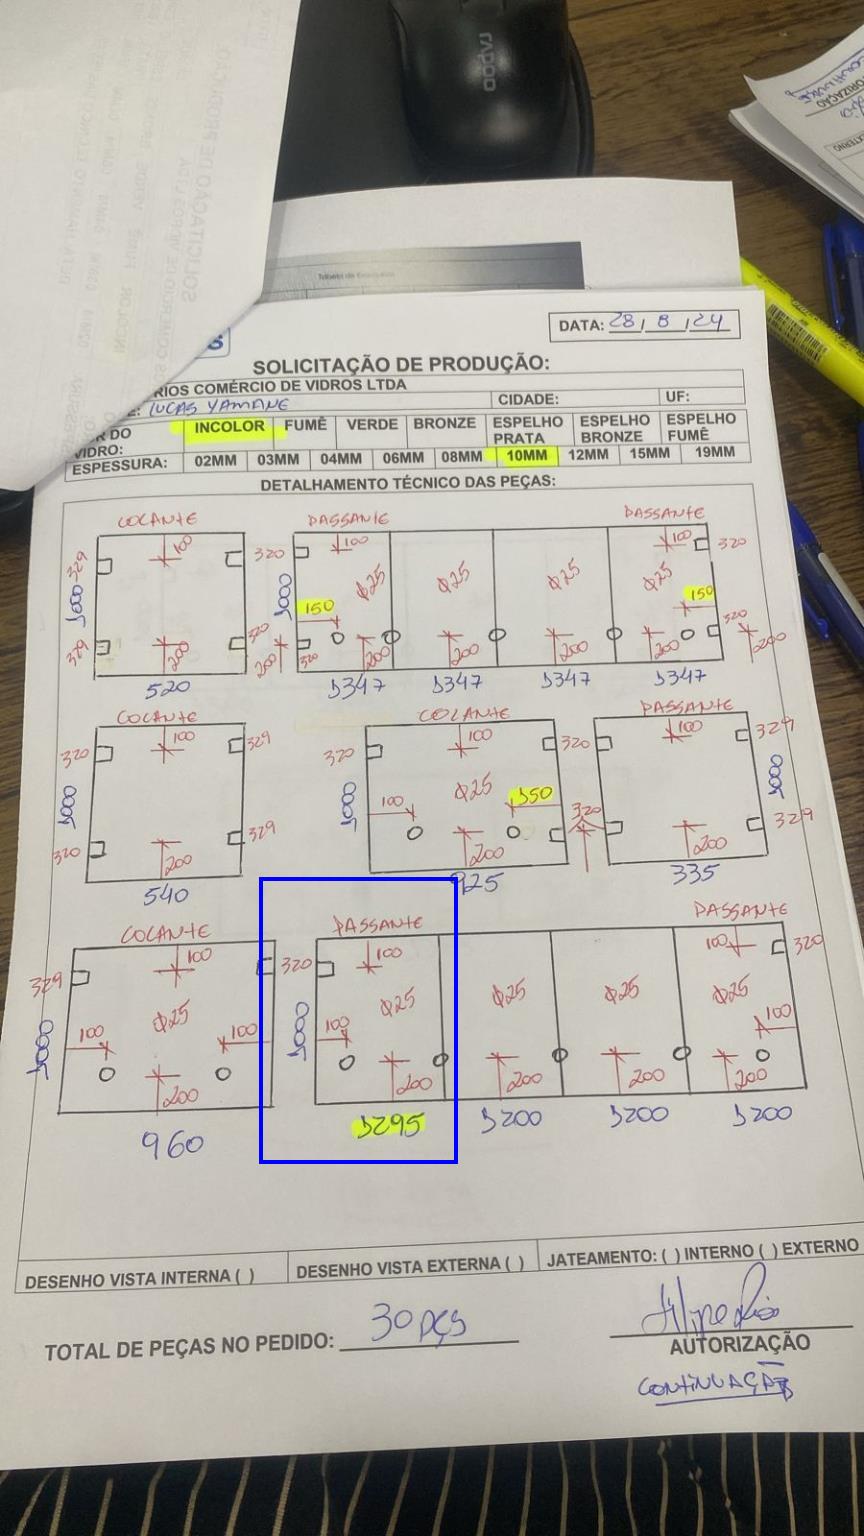 DATA: 28 / 8 / 24
SOLICITAÇÃO DE PRODUÇÃO:
RIOS COMÉRCIO DE VIDROS LTDA
LUCAS YAMANE CIDADE: UF:
DO VIDRO: INCOLOR FUMÊ VERDE BRONZE ESPELHO PRATA ESPELHO BRONZE ESPELHO FUMÊ
ESPESSURA: 02MM 03MM 04MM 06MM 08MM 10MM 12MM 15MM 19MM
DETALHAMENTO TÉCNICO DAS PEÇAS:
COLANTE PASSANTE PASSANTE
329 100 320 100 100 320
1000 1000 Φ25 Φ25 Φ25 Φ25
150 150
329 200 320 200 320 200 200 200 200 320 200
520 1347 1347 1347 1347
COLANTE COLANTE PASSANTE
320 100 329 320 100 320 100 329
1000 1000 Φ25 1000
100 150
320 200 329 200 320 200 329
540 925 335
COLANTE PASSANTE PASSANTE
329 100 320 100 100 320
1000 Φ25 1000 Φ25 Φ25 Φ25 Φ25
100 100 100 100
200 200 200 200 200
960 1295 1200 1200 1200
DESENHO VISTA INTERNA ( ) DESENHO VISTA EXTERNA ( ) JATEAMENTO: ( ) INTERNO ( ) EXTERNO
TOTAL DE PEÇAS NO PEDIDO: 30 PÇS
Filipe Rios
AUTORIZAÇÃO
CONTINUAÇÃO